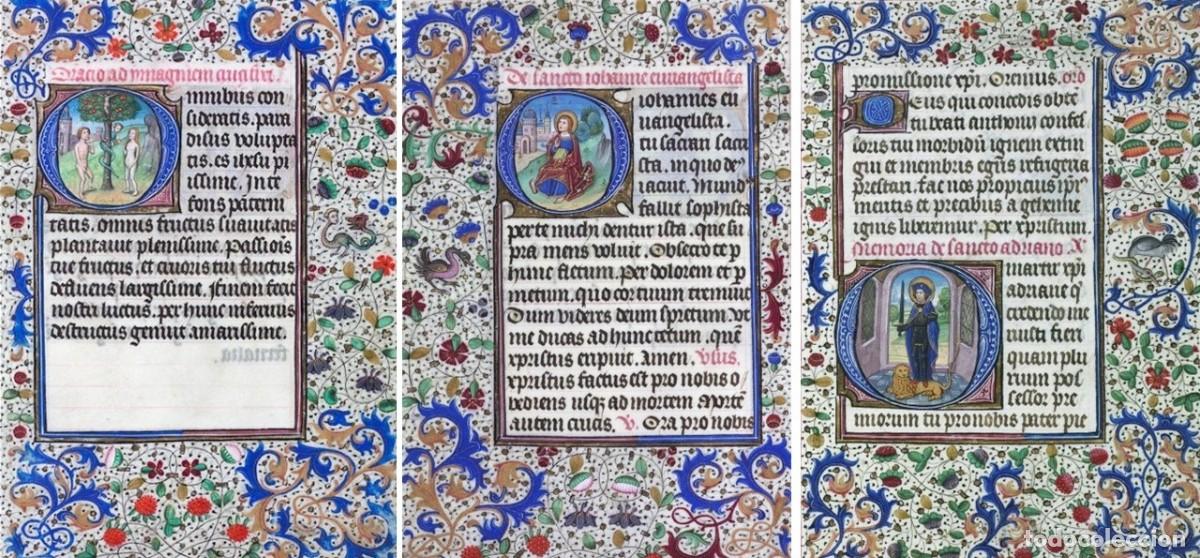 Oracio ad ymaginem
mnibus con
sideratis. para
disus volupta
tis. es ihesu pi
issime. Inte
fons paterni
tatis. omnis fructus suauitatis
plantauit plenissime. Passiois
tue fructus. et cruoris tui fluctus
defluens largissime.
nostra luctus. per hunc inferius
destructus gemit. amarissime.
De sancto iohanne euuangelista
iohannes eu
uangelista.
tu sacrari sacri
sta. in quo de9
iacuit. Mund9
fallit sophista
per te michi dentur ista. que su
pra mens voluit. Obsecro te p
hunc fletum. Per dolorem et p
metum. quo cor tuum tremuit
Dum videres deum spretum. vt
me ducas ad hunc cetum. quem
xpristus eripuit. Amen. Vsus.
xpristus factus est pro nobis o
bediens usq3 ad mortem Morte
autem crucis. V. Ora pro nobis
promissione xpi. Oremus. oro
Eus qui concedis obte
tu beati anthonii confes
soris tui morbidu ignem extin
gui et membris egris refrigeria
prestari. fac nos propicius ipi9
meritis et precibus a gehenne
ignis
Memoria de sancto adriano.
martir xpi
adriane q
credendo me
ruisti fieri
quam plu
rium pos
sessor pre
miorum tu pro nobis pater pie
todocoleccion